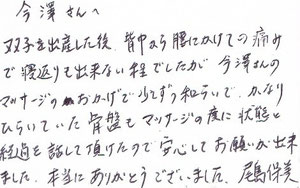 今澤さんへ
双子を出産した後、背中から腰にかけての痛み
で寝返りも出来ない程でしたが 今澤さんの
マッサージのおかげで少しずつ和らいで、かなり
ひらいていた骨盤もマッサージの度に状態と
経過を話して頂けたので安心してお願いが出来
ました。本当にありがとうございました。尾島保美